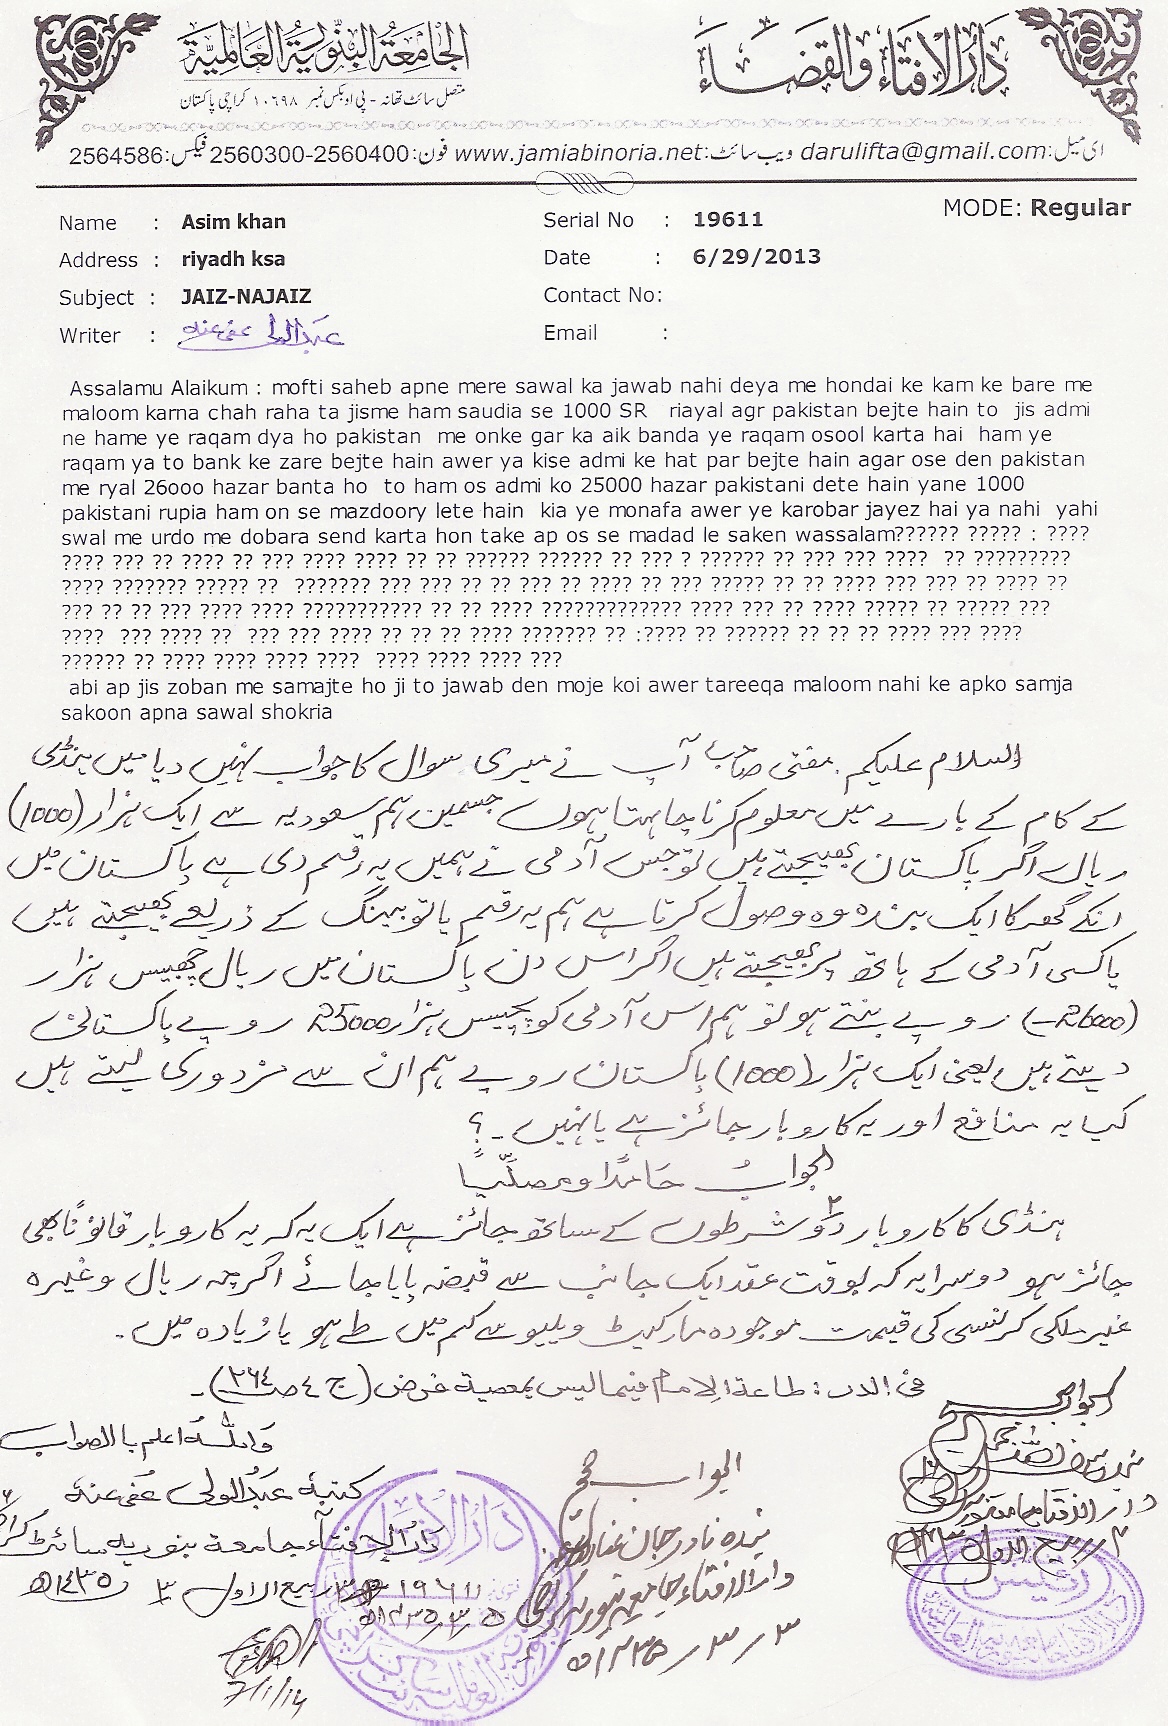 دَارُالاِفتَاء والقضَاء
الجَامعَة البنّوریة العَالمیّة
متصل سائٹ تھانہ - پی او بکس نمبر ۱۰۶۹۸ کراچی پاکستان
ای میل: darulifta@gmail.com ویب سائٹ: www.jamiabinoria.net فون: 2560300-2560400 فیکس: 2564586
MODE: Regular
Name : Asim khan Serial No : 19611
Address : riyadh ksa Date : 6/29/2013
Subject : JAIZ-NAJAIZ Contact No:
Writer : عبدالولی عفی عنہ Email :
Assalamu Alaikum : mofti saheb apne mere sawal ka jawab nahi deya me hondai ke kam ke bare me
maloom karna chah raha ta jisme ham saudia se 1000 SR riayal agr pakistan bejte hain to jis admi
ne hame ye raqam dya ho pakistan me onke gar ka aik banda ye raqam osool karta hai ham ye
raqam ya to bank ke zare bejte hain awer ya kise admi ke hat par bejte hain agar ose den pakistan
me ryal 26ooo hazar banta ho to ham os admi ko 25000 hazar pakistani dete hain yane 1000
pakistani rupia ham on se mazdoory lete hain kia ye monafa awer ye karobar jayez hai ya nahi yahi
swal me urdo me dobara send karta hon take ap os se madad le saken wassalam?????? ????? : ????
???? ??? ?? ???? ?? ??? ???? ???? ?? ?? ?????? ?????? ?? ??? ? ?????? ?? ??? ??? ???? ?? ?????????
???? ??????? ????? ?? ??????? ??? ??? ?? ?? ??? ?? ???? ?? ??? ????? ?? ?? ???? ??? ??? ?? ???? ??
??? ?? ?? ??? ???? ???? ??????????? ?? ?? ???? ????????????? ???? ??? ?? ???? ????? ?? ????? ???
???? ??? ???? ?? ??? ??? ???? ?? ?? ?? ???? ??????? ?? :???? ?? ?????? ?? ?? ?? ???? ??? ????
?????? ?? ???? ???? ???? ???? ???? ???? ???? ???
abi ap jis zoban me samajte ho ji to jawab den moje koi awer tareeqa maloom nahi ke apko samja
sakoon apna sawal shokria
السلام علیکم مفتی صاحب آپ نے میری سوال کا جواب نہیں دیا میں ہنڈی
کے کام کے بارے میں معلوم کرنا چاہتا ہوں جسمیں ہم سعودیہ سے ایک ہزار (1000)
ریال اگر پاکستان بھیجتے ہیں تو جس آدمی نے ہمیں یہ رقم دی ہے پاکستان میں
انکے گھر کا ایک بندہ وہ وصول کرتا ہے ہم یہ رقم یا تو بینگ کے ذریعے بھیجتے ہیں
یا کسی آدمی کے ہاتھ پر بھیجتے ہیں اگر اس دن پاکستان میں ریال چھبیس ہزار
(26000) روپے بنتے ہو تو ہم اس آدمی کو پچیس ہزار 25000 روپے پاکستانی
دیتے ہیں یعنی ایک ہزار (1000) پاکستان روپے ہم ان سے مزدوری لیتے ہیں
کیا یہ منافع اور یہ کاروبار جائز ہے یا نہیں ۔ ؟
الجوابُ حَامدًا ومصلّیًا
ہنڈی کا کاروبار دو ۲ شرطوں کے ساتھ جائز ہے ایک یہ کہ یہ کاروبار قانوناً بھی
جائز ہو دوسرا یہ کہ بوقت عقد ایک جانب سے قبضہ پایا جائے اگرچہ ریال وغیرہ
غیر ملکی کرنسی کی قیمت موجودہ مارکیٹ ویلیو سے کم میں طے ہو یا زیادہ میں ۔
فی الدر : طاعة الامام فیما لیس بمعصیة فرض (ج ٤ صـ ٢٦٤) ۔
وَاللّٰہُ اعلم بالصواب
کتبہٗ عبدُالولی عفی عنہ
دَارُالافتاء جامعہ بنوریہ سائٹ کراچی
۳ ربیع الاول ۱۴۳۵ھ
۱۹۶۱۱
۱۴۳۵/۳/۵ھ
7/1/14
الجواب صحیح
بندہ نادر جان
دارالافتاء جامعہ بنوریہ کراچی
۳/۳/۱۴۳۵ھ
الجواب صحیح
دارالافتاء جامعہ بنوریہ
ربیع الاول
دَارُالاِفتَاء
رئیس